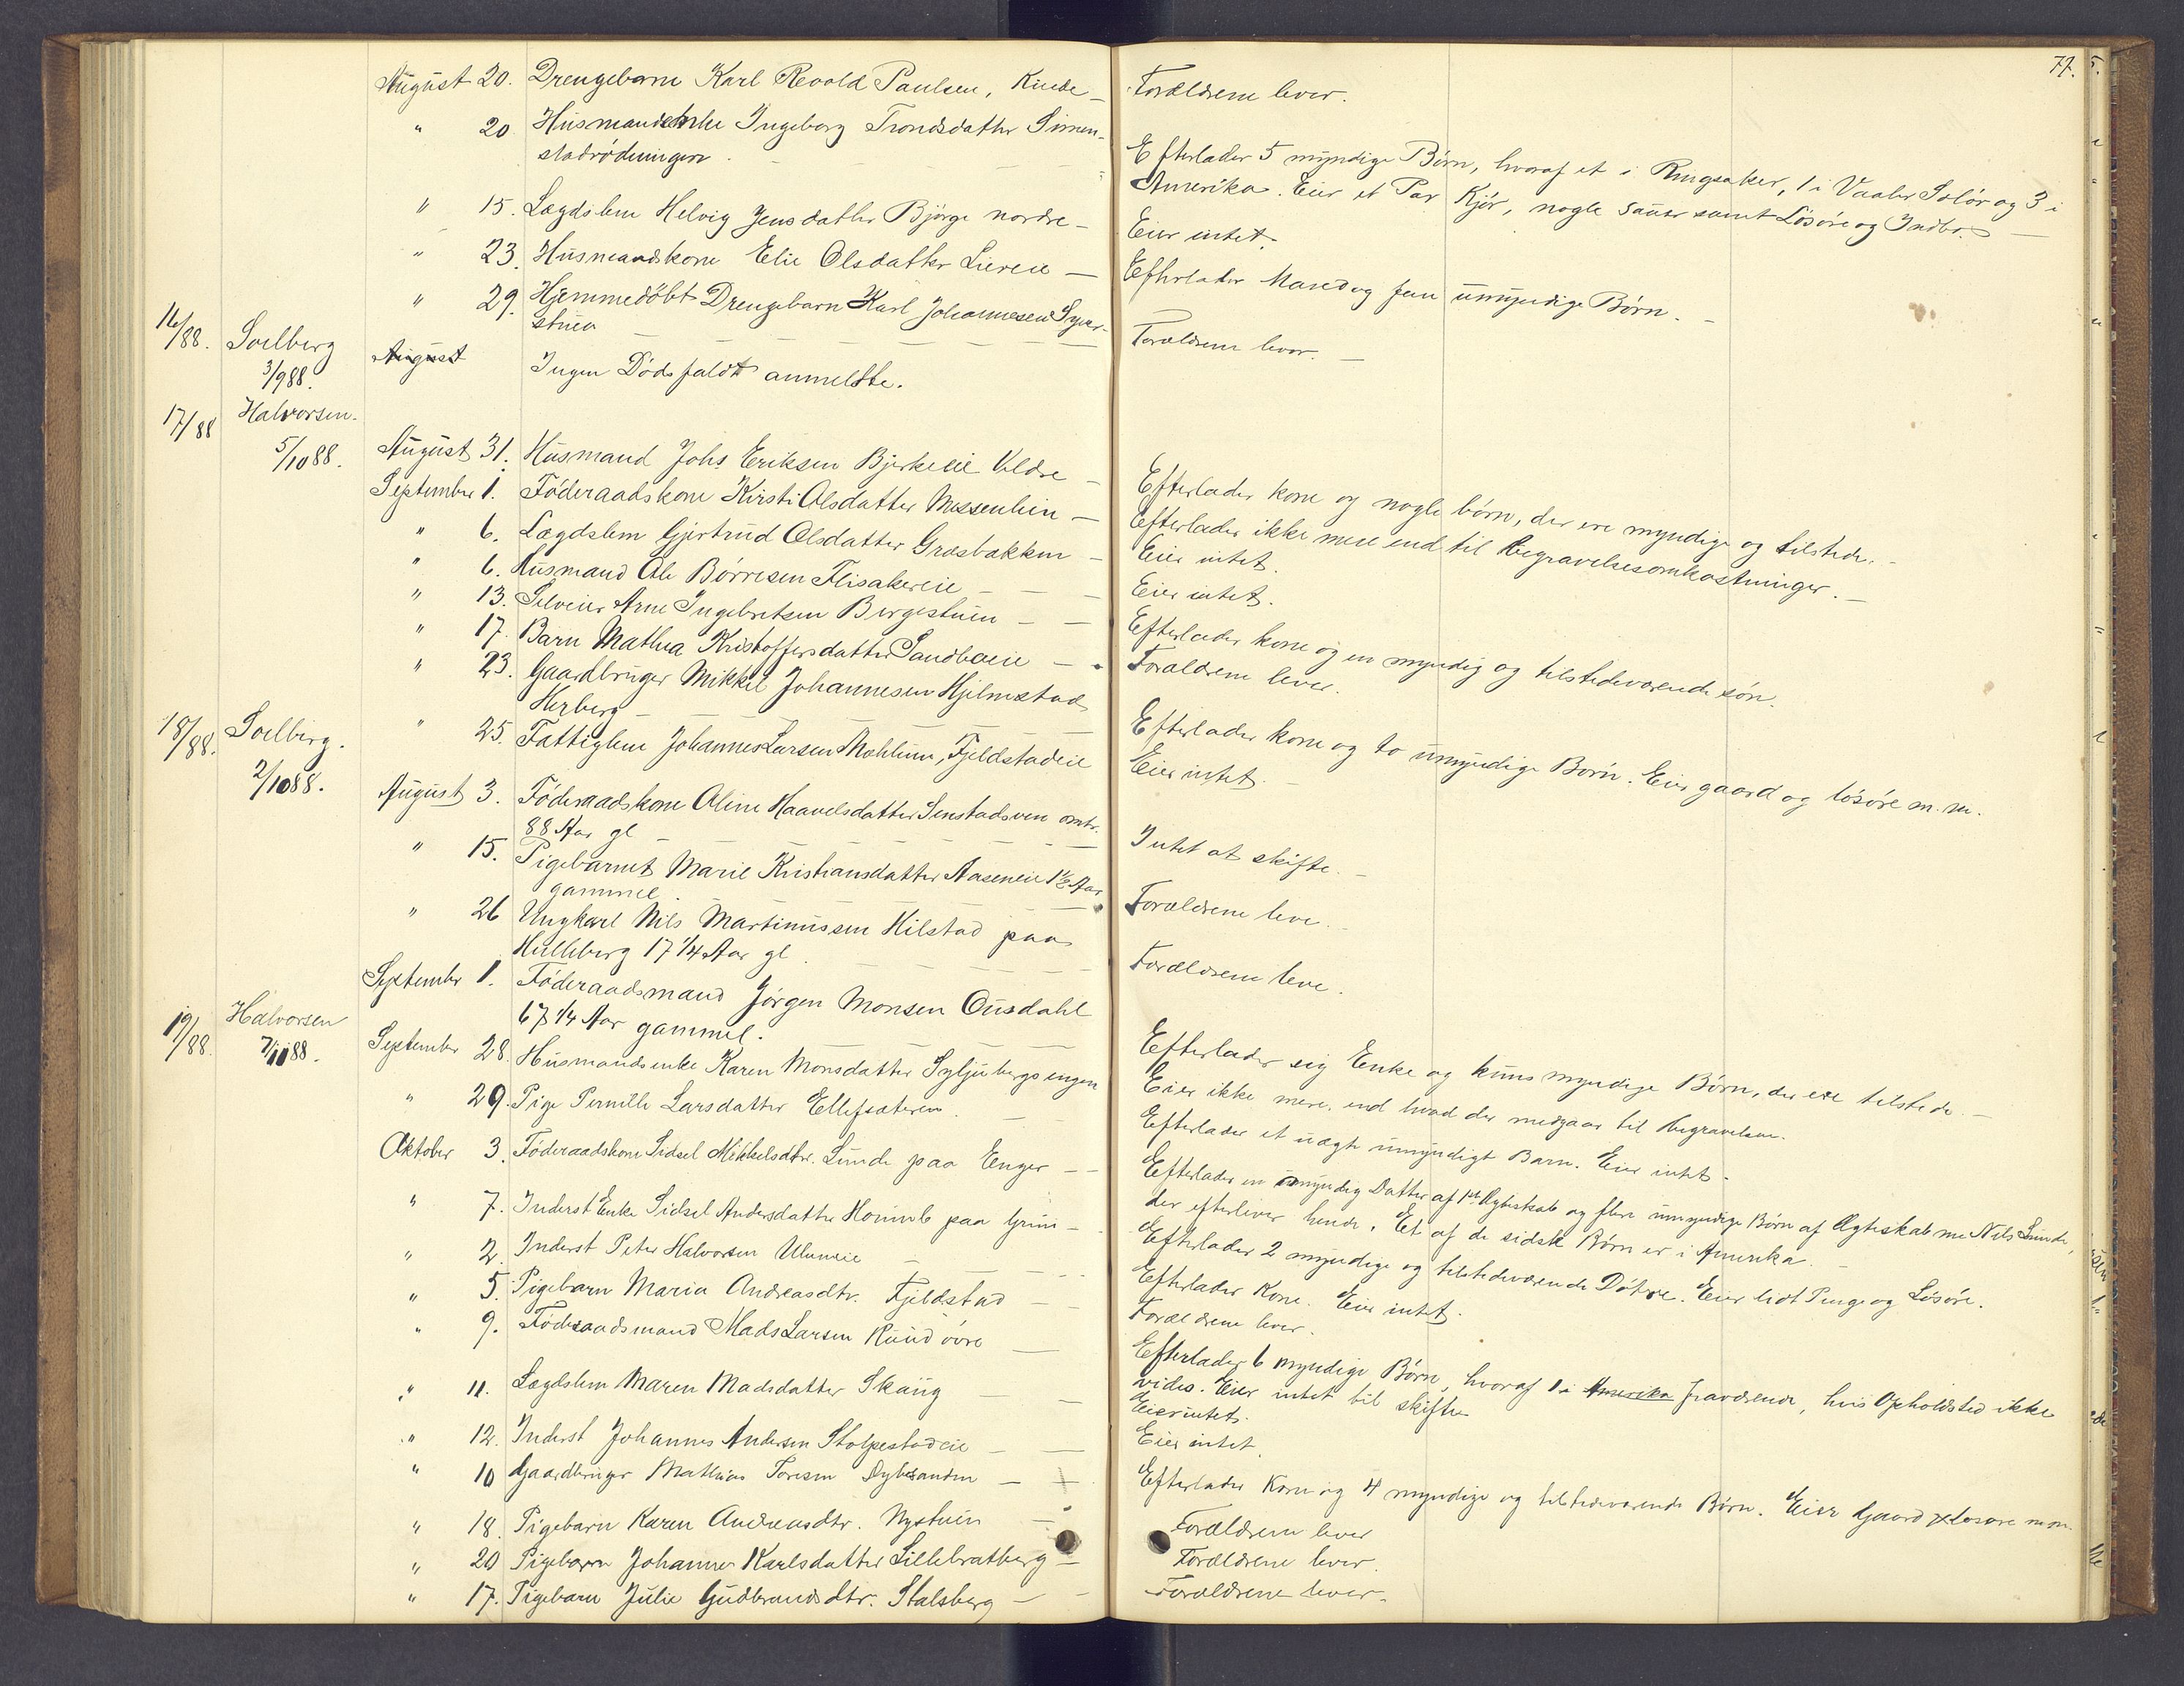 77.
August 20. Drengebarn Karl Revold Paulsen, Kinde - Forældrene lever.
" 20 Husmandsenke Ingeborg Trondsdatter Simen-
stadrödningen. - Efterlader 5 myndige Börn, hvoraf et i Ringsaker, 1 i Vaaler Solör og 3 i
Amerika. Eier et Par Kjör, nogle Sauer samt Lösöre og Indbo. -
" 15. Lægdslem Helvig Jensdatter Björge nordre - Eier intet.
" 23. Husmandskone Elie Olsdatter Liereie - Efterlader Mand og fem umyndige Börn. -
" 29. Hjemmedöbt Drengebarn Karl Johannesen Syver-
stuen - Forældrene lever. -
16/88. Soelberg
3/9 88. August Ingen Dödsfaldt anmeldte.
17/88 Halvorsen.
5/10 88. August 31. Husmand Johs Eriksen Bjerkeeie Veldre - Efterlader kone og nogle börn, der ere myndige og tilstede. -
September 1. Föderaadskone Kirsti Olsdatter Messenlien - Efterlader ikke mere end til Begravelsesomkostninger. -
" 6. Lægdslem Gjertrud Olsdatter Græsbakken - Eier intet.
" 6. Husmand Ole Börresen Flisakereie - Eier intet.
" 13. Selveier Arne Ingebretsen Bergestuen - Efterlader kone og en myndig og tilstedeværende sön.
" 17. Barn Mathea Kristoffersdatter Sandboeie - Forældrene lever.
" 23. Gaardbruger Mikkel Johannesen Hjelmstad
Herberg - Efterlader kone og to umyndige Börn. Eier gaard og lösöre m. m.
" 25. Fattiglem Johannes Larsen Mæhlum, Fjeldstadeie Eier intet. -
18/88. Soelberg.
2/10 88. August 3. Föderaadskone Oline Haavelsdatter Senstadsven omtr.
88 Aar gl - Intet at skifte. -
" 15. Pigebarnet Marie Kristiansdatter Aaseneie 1½ Aar
gammel. - Forældrene leve. -
" 26 Ungkarl Nils Martinussen Hilstad paa
Hulleberg 17 1/4 Aar gl. - Forældrene leve.
September 1. Föderaadsmand Jörgen Monsen Ousdahl
67 1/4 Aar gammel. - Efterlader sig Enke og kuns myndige Börn, der ere tilstede. -
19/88. Halvorsen
7/11 88. September 28. Husmandsenke Karen Monsdatter Syljubergsengen Eier ikke mere, end hvad der medgaar til Begravelsen.
" 29. Pige Pernille Larsdatter Ellefsæteren. - Efterlader et uægte umyndigt Barn. Eier intet -
Oktober 3. Föderaadskone Sidsel Mikkelsdtr. Lunde paa Enger - Efterlader en myndig Datter af 1ste Ægteskab og flere umyndige Börn af Ægteskab me Nils Lunde,
der efterlever hende. Et af de sidste Börn er i Amerika. -
" 7. Inderst Enke Sidsel Andersdatter Homnb paa Grini - Efterlader 2 myndige og tilstedeværende Dötre. Eier lidt Penge og Lösöre.
" 2. Inderst Peter Halvorsen Ulnneie - Efterlader Kone. Eier intet.
" 5. Pigebarn Maria Andreasdtr. Fjeldstad - Forældrene lever.
" 9. Föderaadsmand Mads Larsen Ruud övre - Efterlader 6 myndige Börn, hvoraf 1 i Amerika fraværende, hvis Opholdsted ikke
vides. Eier intet til skifte
" 11. Lægdslem Maren Madsdatter Skaug - Eier intet.
" 12. Inderst Johannes Andersen Stolpestadeie - Eier intet.
" 10 Gaardbruger Mathias Toresen Dybesanden - Efterlader Kone og 4 myndige og tilstedeværende Börn. Eier Gaard Lösöre m m.
" 18. Pigebarn Karen Andreasdtr. Nystuen - Forældrene lever
" 20 Pigebarn Johanne Karlsdatter Lillebratberg - Forældrene lever.
" 17. Pigebarn Julie Gudbrandsdtr. Stalsberg - Forældrene lever.